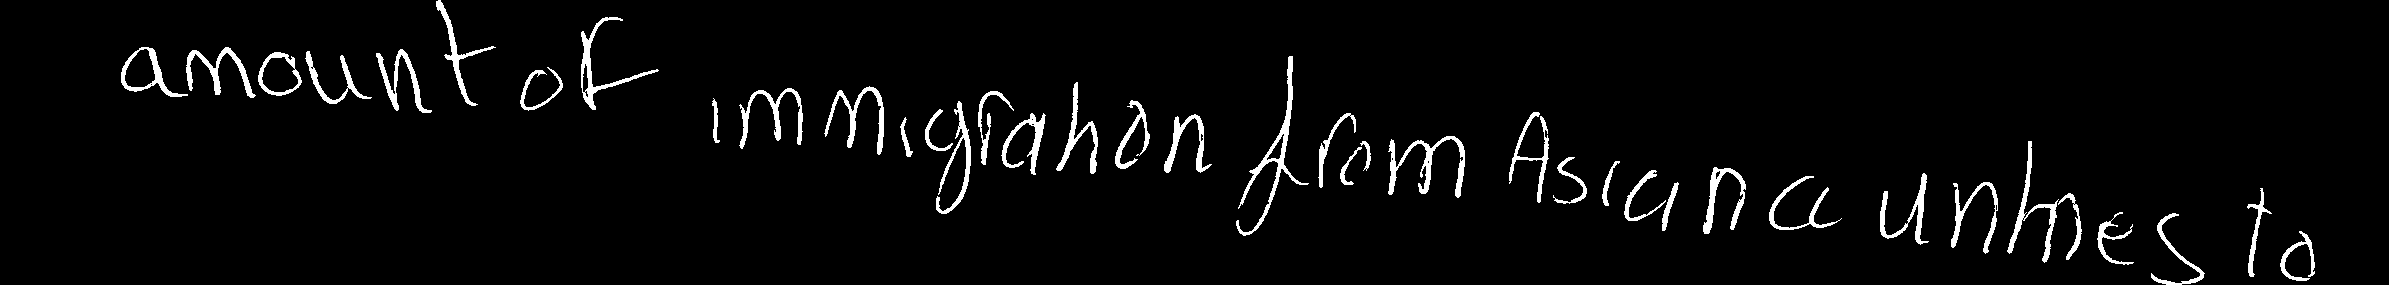 amount of immigration from Asian countries to